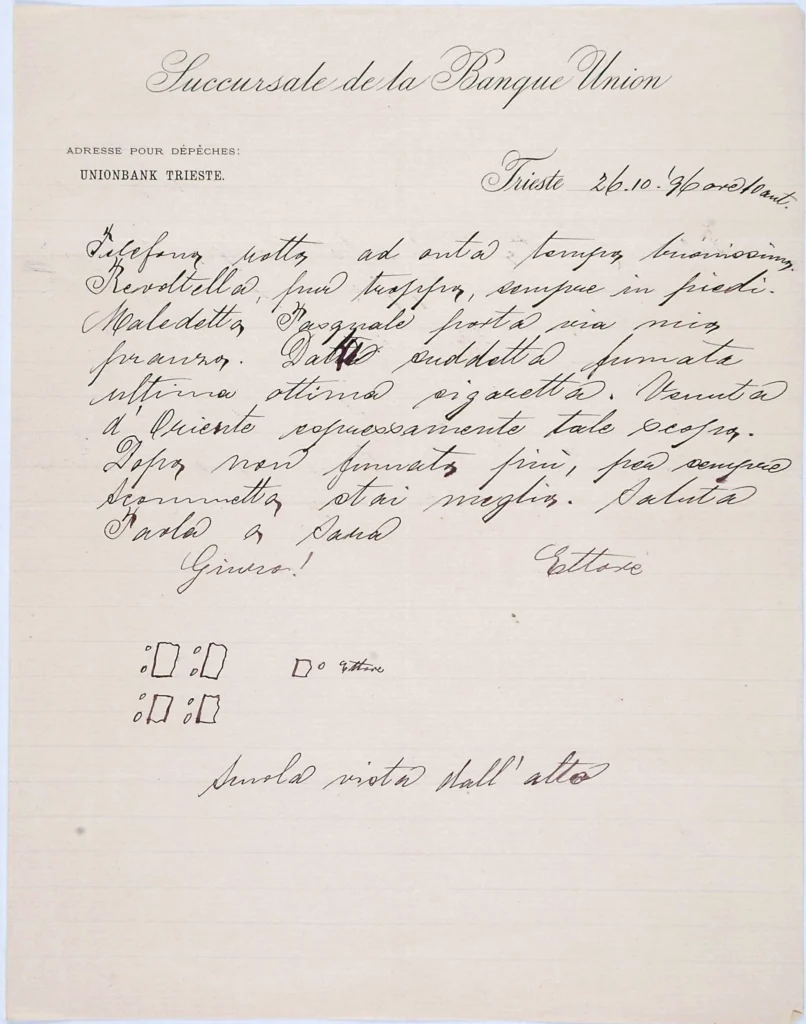 Succursale de la Banque Union
ADRESSE POUR DÉPÊCHES:
UNIONBANK TRIESTE.
Trieste 26.10.'96 ore 10 ant.
Telefono rotto ad onta tempo buonissimo.
Revoltella, pur troppo, sempre in piedi.
Maledetto Pasquale porta via mio
pranzo. Data suddetta fumata
ultima ottima sigaretta. Venuta
d'Oriente espressamente tale scopo.
Dopo non fumato più, per sempre
Scommetto stai meglio. Saluta
Paola o Sara
Giuro! Ettore
Ettore
Scuola vista dall'alto